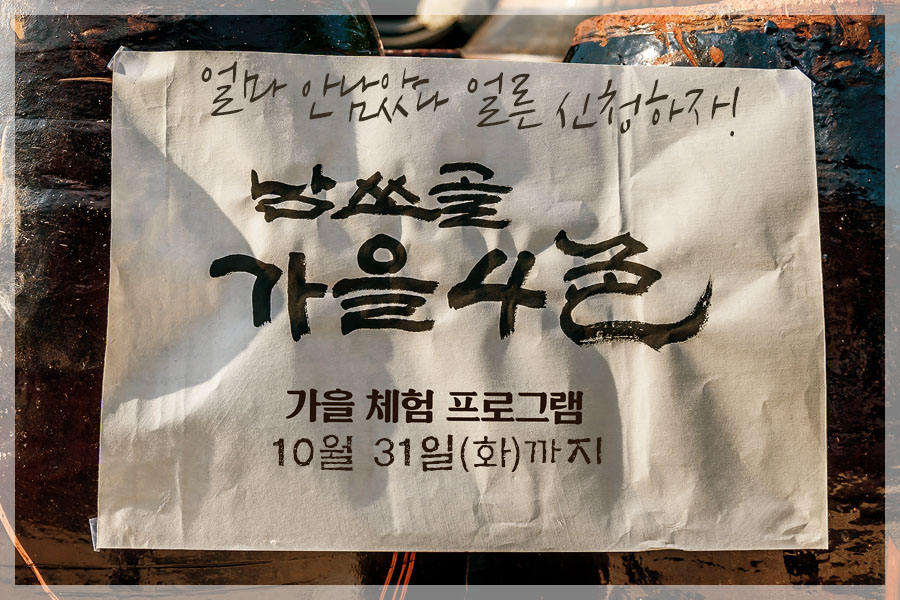 얼마 안남았다 얼른 신청하자!
가을4色
가을 체험 프로그램
10월 31일(화)까지